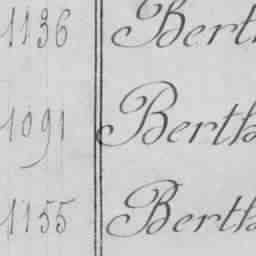 1136 Berth
1091 Berth
1155 Berth